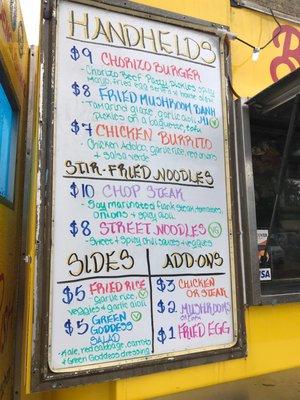 HANDHELDS
$9 CHORIZO BURGER
Chorizo Beef Patty, pickles, spicy
mayo, fried egg
$8 FRIED MUSHROOM BAHN MI
tamarind glaze, garlic aioli
pickles on a baguette, tofu
$7 CHICKEN BURRITO
Chicken Adobo, garlic rice, red onions
+ salsa verde
STIR-FRIED NOODLES
$10 CHOP STEAK
Soy marinated flank steak, tomatoes,
onions + spicy aioli
$8 STREET NOODLES VG
Sweet + spicy chili sauces + veggies
SIDES
$5 FRIED RICE
Garlic rice,
veggies + garlic aioli
$5 GREEN
GODDESS
SALAD
Kale, red cabbage, carrots
+ Green Goddess dressing
ADD-ONS
$3 CHICKEN
OR STEAK
$2 MUSHROOMS
$1 FRIED EGG
VISA
B